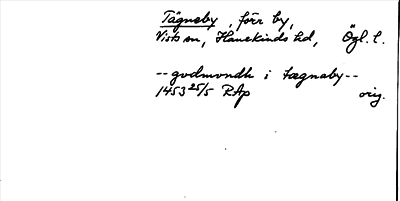 Tägneby, förr by,
Vists sn, Hanekinds hd, Ögl. l.
--gudmondh i tægnaby--
1453 25/5 RAp orig.